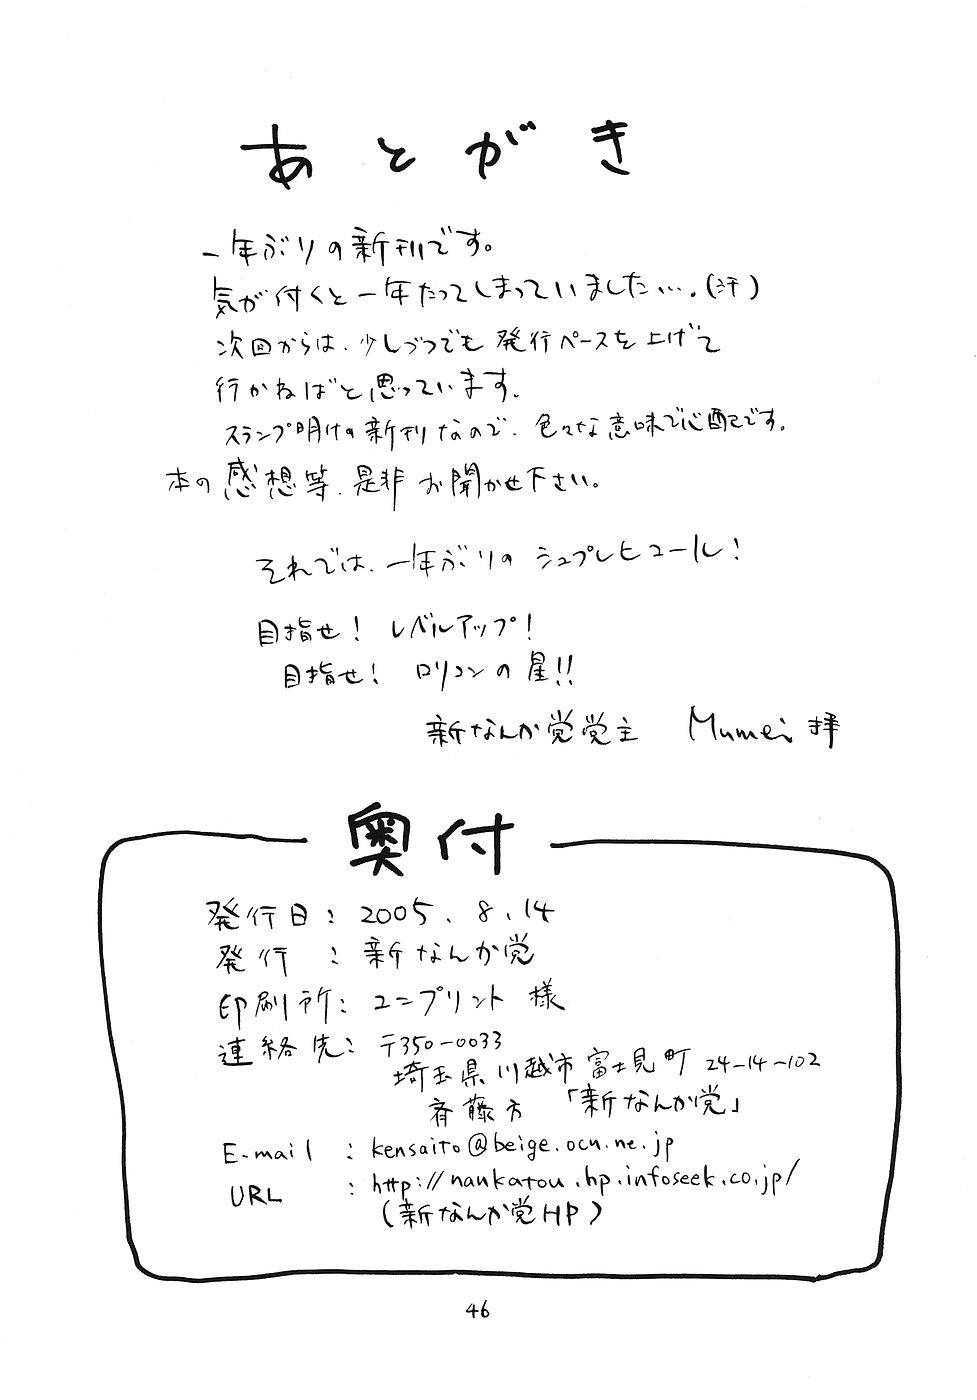 あとがき
一年ぶりの新刊です。
気が付くと一年たってしまっていました…。(汗)
次回からは、少しづつでも発行ペースを上げて
行かねばと思っています。
スランプ明けの新刊なので、色々な意味で心配です。
本の感想等、是非お聞かせ下さい。
それでは、一年ぶりのシュプレヒコール!
目指せ! レベルアップ!
目指せ! ロリコンの星!!
新なんか党党主 Mumei 拝
奥付
発行日: 2005.8.14
発行 : 新なんか党
印刷所: ユニプリント 様
連絡先: 〒350-0033
埼玉県川越市富士見町 24-14-102
斉藤方 「新なんか党」
E-mail : kensaito@beige.ocn.ne.jp
URL : http://nankatou.hp.infoseek.co.jp/
(新なんか党HP)
46